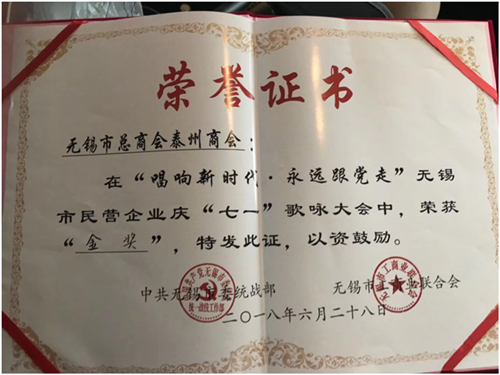 荣誉证书
无锡市总商会泰州商会：
在“唱响新时代·永远跟党走”无锡
市民营企业庆“七一”歌咏大会中，荣获
“金奖”，特发此证，以资鼓励。
中共无锡市委统战部 无锡市工商业联合会
二〇一八年六月二十八日